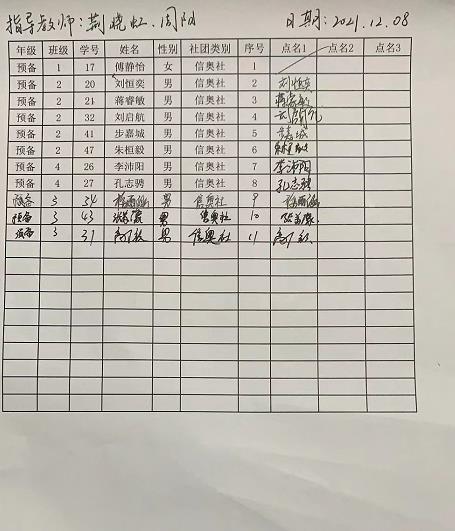 指导教师：荆晓虹.周阳 日期：2021.12.08
年级 班级 学号 姓名 性别 社团类别 序号 点名1 点名2 点名3
预备 1 17 傅静怡 女 信奥社 1
预备 2 20 刘恒奕 男 信奥社 2 刘恒奕
预备 2 21 蒋睿敏 男 信奥社 3 蒋睿敏
预备 2 32 刘启航 男 信奥社 4 刘启航
预备 2 41 步嘉城 男 信奥社 5 步嘉城
预备 2 47 朱桓毅 男 信奥社 6 朱桓毅
预备 4 26 李沛阳 男 信奥社 7 李沛阳
预备 4 27 孔志骋 男 信奥社 8 孔志骋
预备 3 34 男 信奥社 9
预备 3 43 男 信奥社 10
预备 3 31 男 信奥社 11